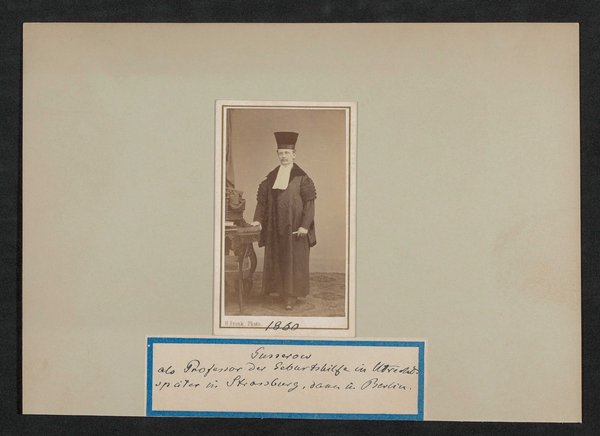 H. Frank Photo.
1860
Gusserow
als Professor der Geburtshilfe in Utrecht
später in Strassburg, dann in Berlin.